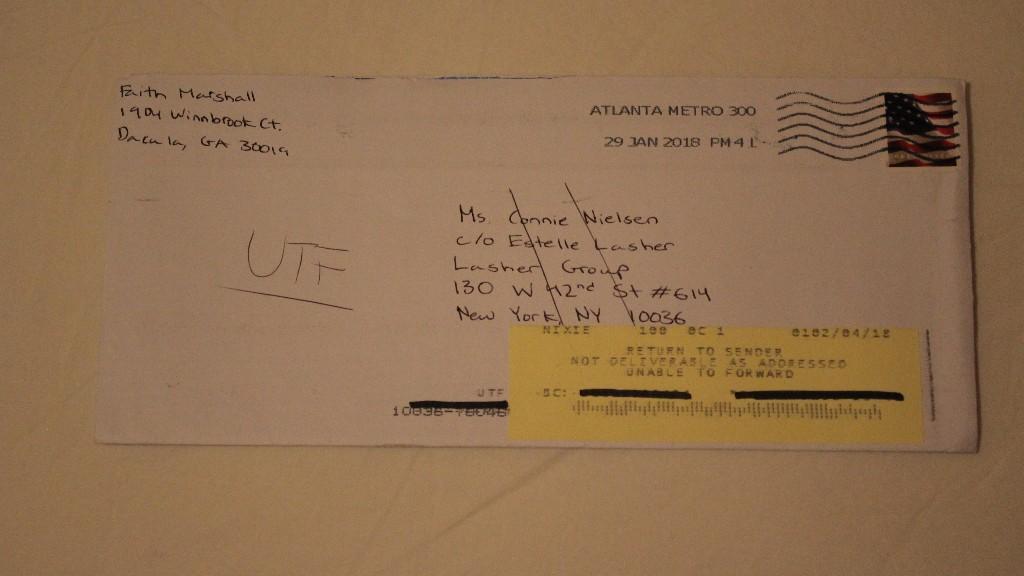 Faith Marshall
1904 Winnbrook Ct.
Dacula, GA 30019
ATLANTA METRO 300
29 JAN 2018 PM 4 L
UTF
Ms. Connie Nielsen
c/o Estelle Lasher
Lasher Group
130 W 42nd St #614
New York, NY 10036
NIXIE 100 DC 1 0102/04/18
RETURN TO SENDER
NOT DELIVERABLE AS ADDRESSED
UNABLE TO FORWARD
UTF
BC: